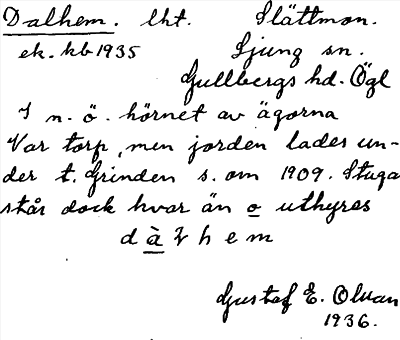 Dalhem. lht. Slättmon.
ek. kb 1935 Ljung sn.
Gullbergs hd. Ögl
I n. ö. hörnet av ägorna
Var torp, men jorden lades un-
der t. Grinden s. om 1909. Stuga
står dock kvar än o uthyres
d à l h e m
Gustaf E. Olvan
1936.